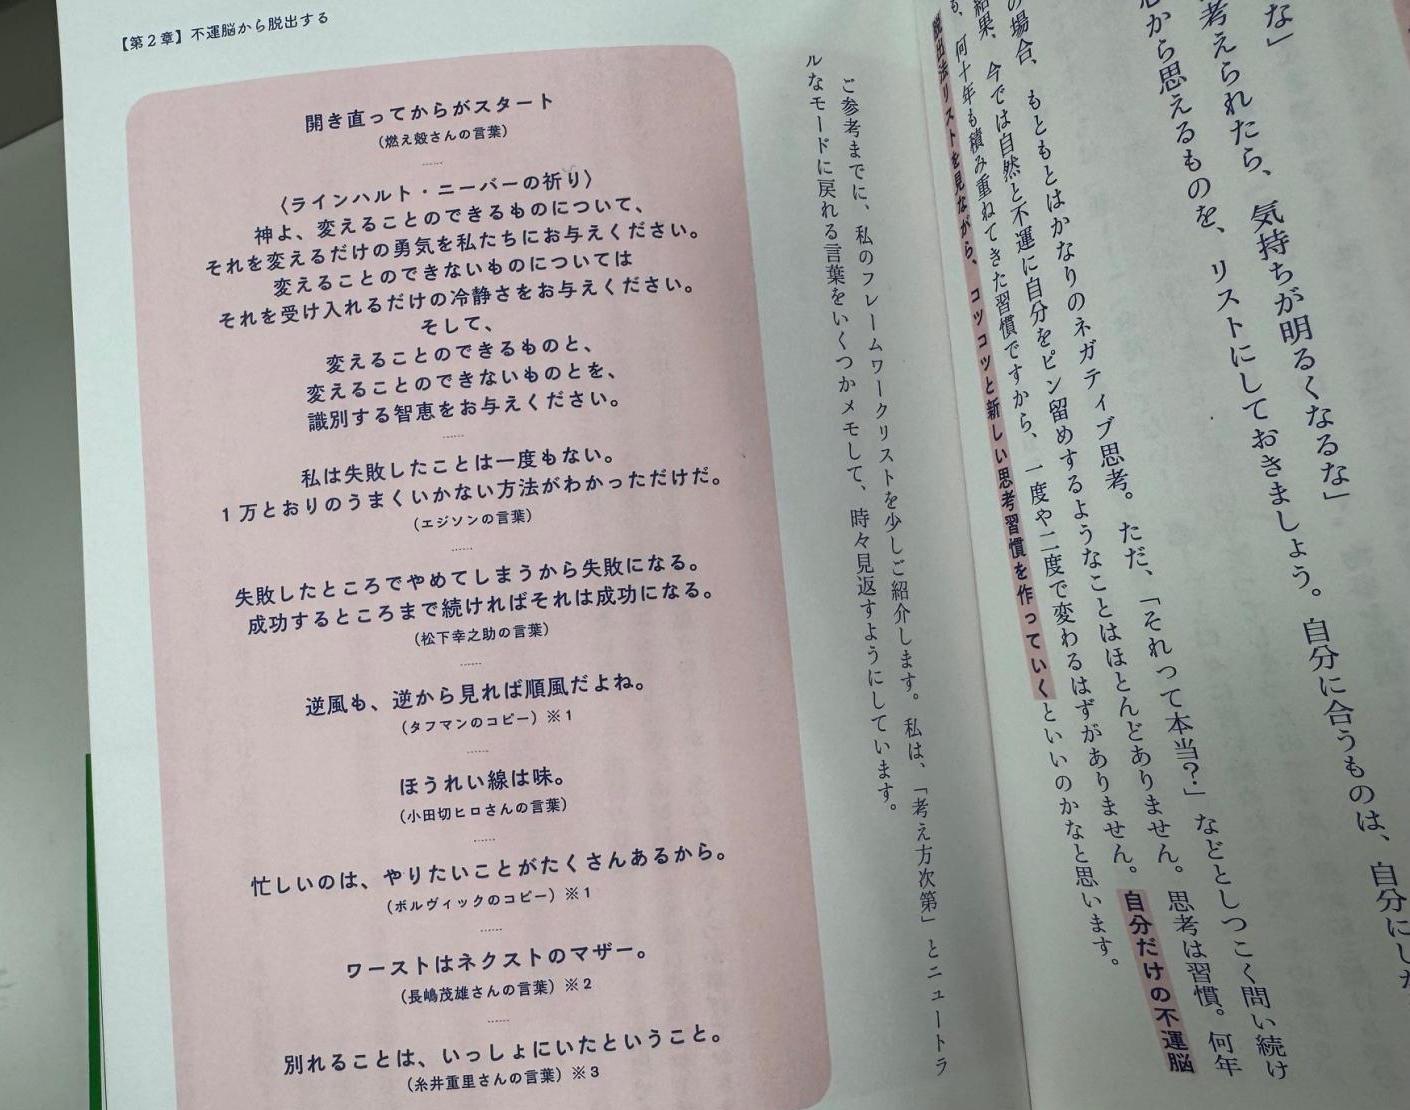 な」
考えられたら、気持ちが明るくなるな」
心から思えるものを、リストにしておきましょう。自分に合うものは、自分にし
の場合、もともとはかなりのネガティブ思考。ただ、「それって本当?」などとしつこく問い続け
結果、今では自然と不運に自分をピン留めするようなことはほとんどありません。思考は習慣。何年
も、何十年も積み重ねてきた習慣ですから、一度や二度で変わるはずがありません。自分だけの不運脳
脱出法リストを見ながら、コツコツと新しい思考習慣を作っていくといいのかなと思います。
ご参考までに、私のフレームワークリストを少しご紹介します。私は、「考え方次第」とニュートラ
ルなモードに戻れる言葉をいくつかメモして、時々見返すようにしています。
【第2章】不運脳から脱出する
開き直ってからがスタート
(燃え殻さんの言葉)
〈ラインハルト・ニーバーの祈り〉
神よ、変えることのできるものについて、
それを変えるだけの勇気を私たちにお与えください。
変えることのできないものについては
それを受け入れるだけの冷静さをお与えください。
そして、
変えることのできるものと、
変えることのできないものとを、
識別する智恵をお与えください。
私は失敗したことは一度もない。
1万とおりのうまくいかない方法がわかっただけだ。
(エジソンの言葉)
失敗したところでやめてしまうから失敗になる。
成功するところまで続ければそれは成功になる。
(松下幸之助の言葉)
逆風も、逆から見れば順風だよね。
(タフマンのコピー)※1
ほうれい線は味。
(小田切ヒロさんの言葉)
忙しいのは、やりたいことがたくさんあるから。
(ボルヴィックのコピー)※1
ワーストはネクストのマザー。
(長嶋茂雄さんの言葉)※2
別れることは、いっしょにいたということ。
(糸井重里さんの言葉)※3